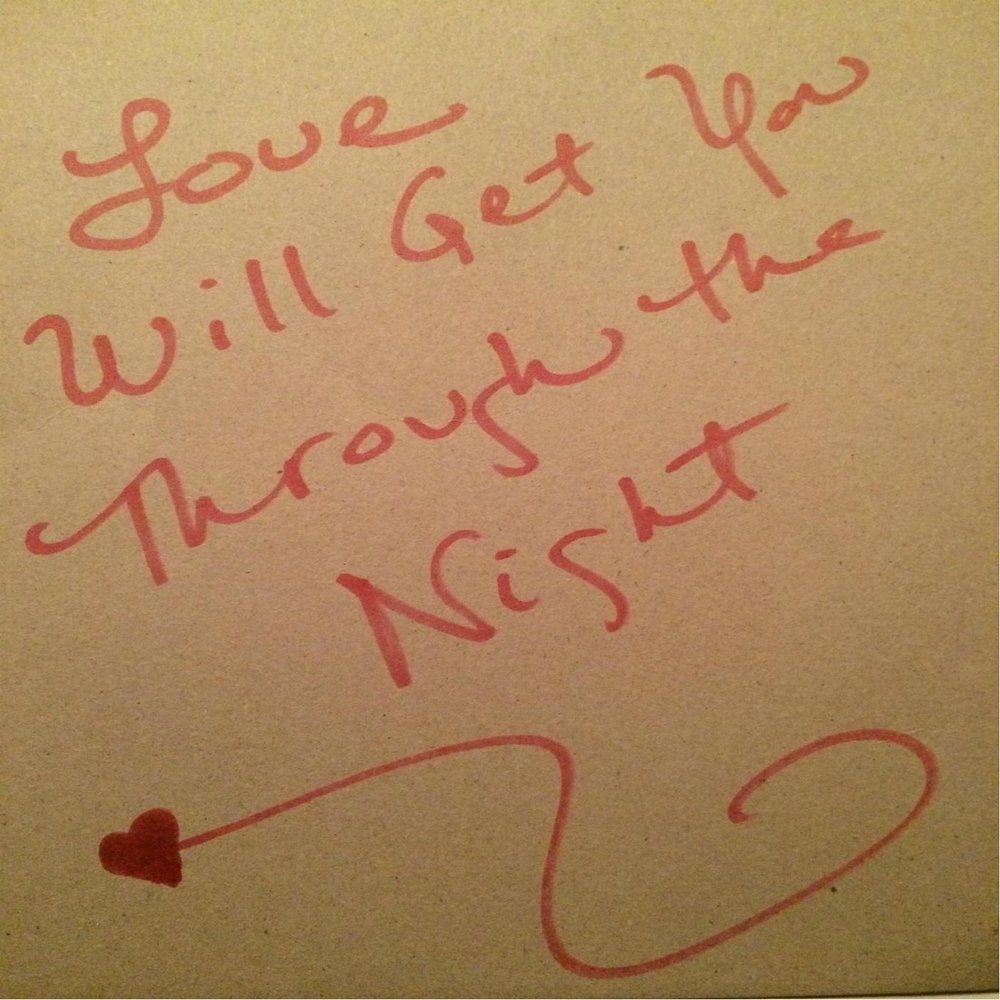 Love
Will Get You
Through the
Night